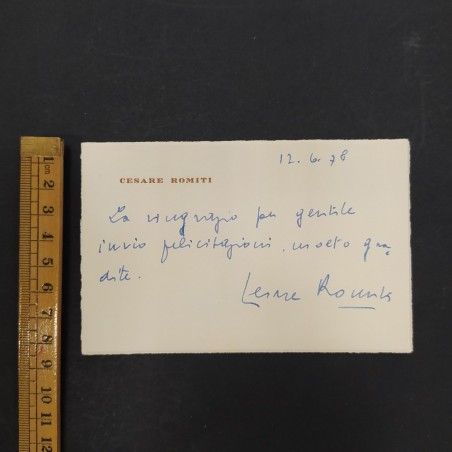 12.6.78
CESARE ROMITI
La ringrazio per gentile
invio felicitazioni. molto gra
dite.
Cesare Romiti
1 cm
2
3
4
5
6
7
8
9
10
11
12